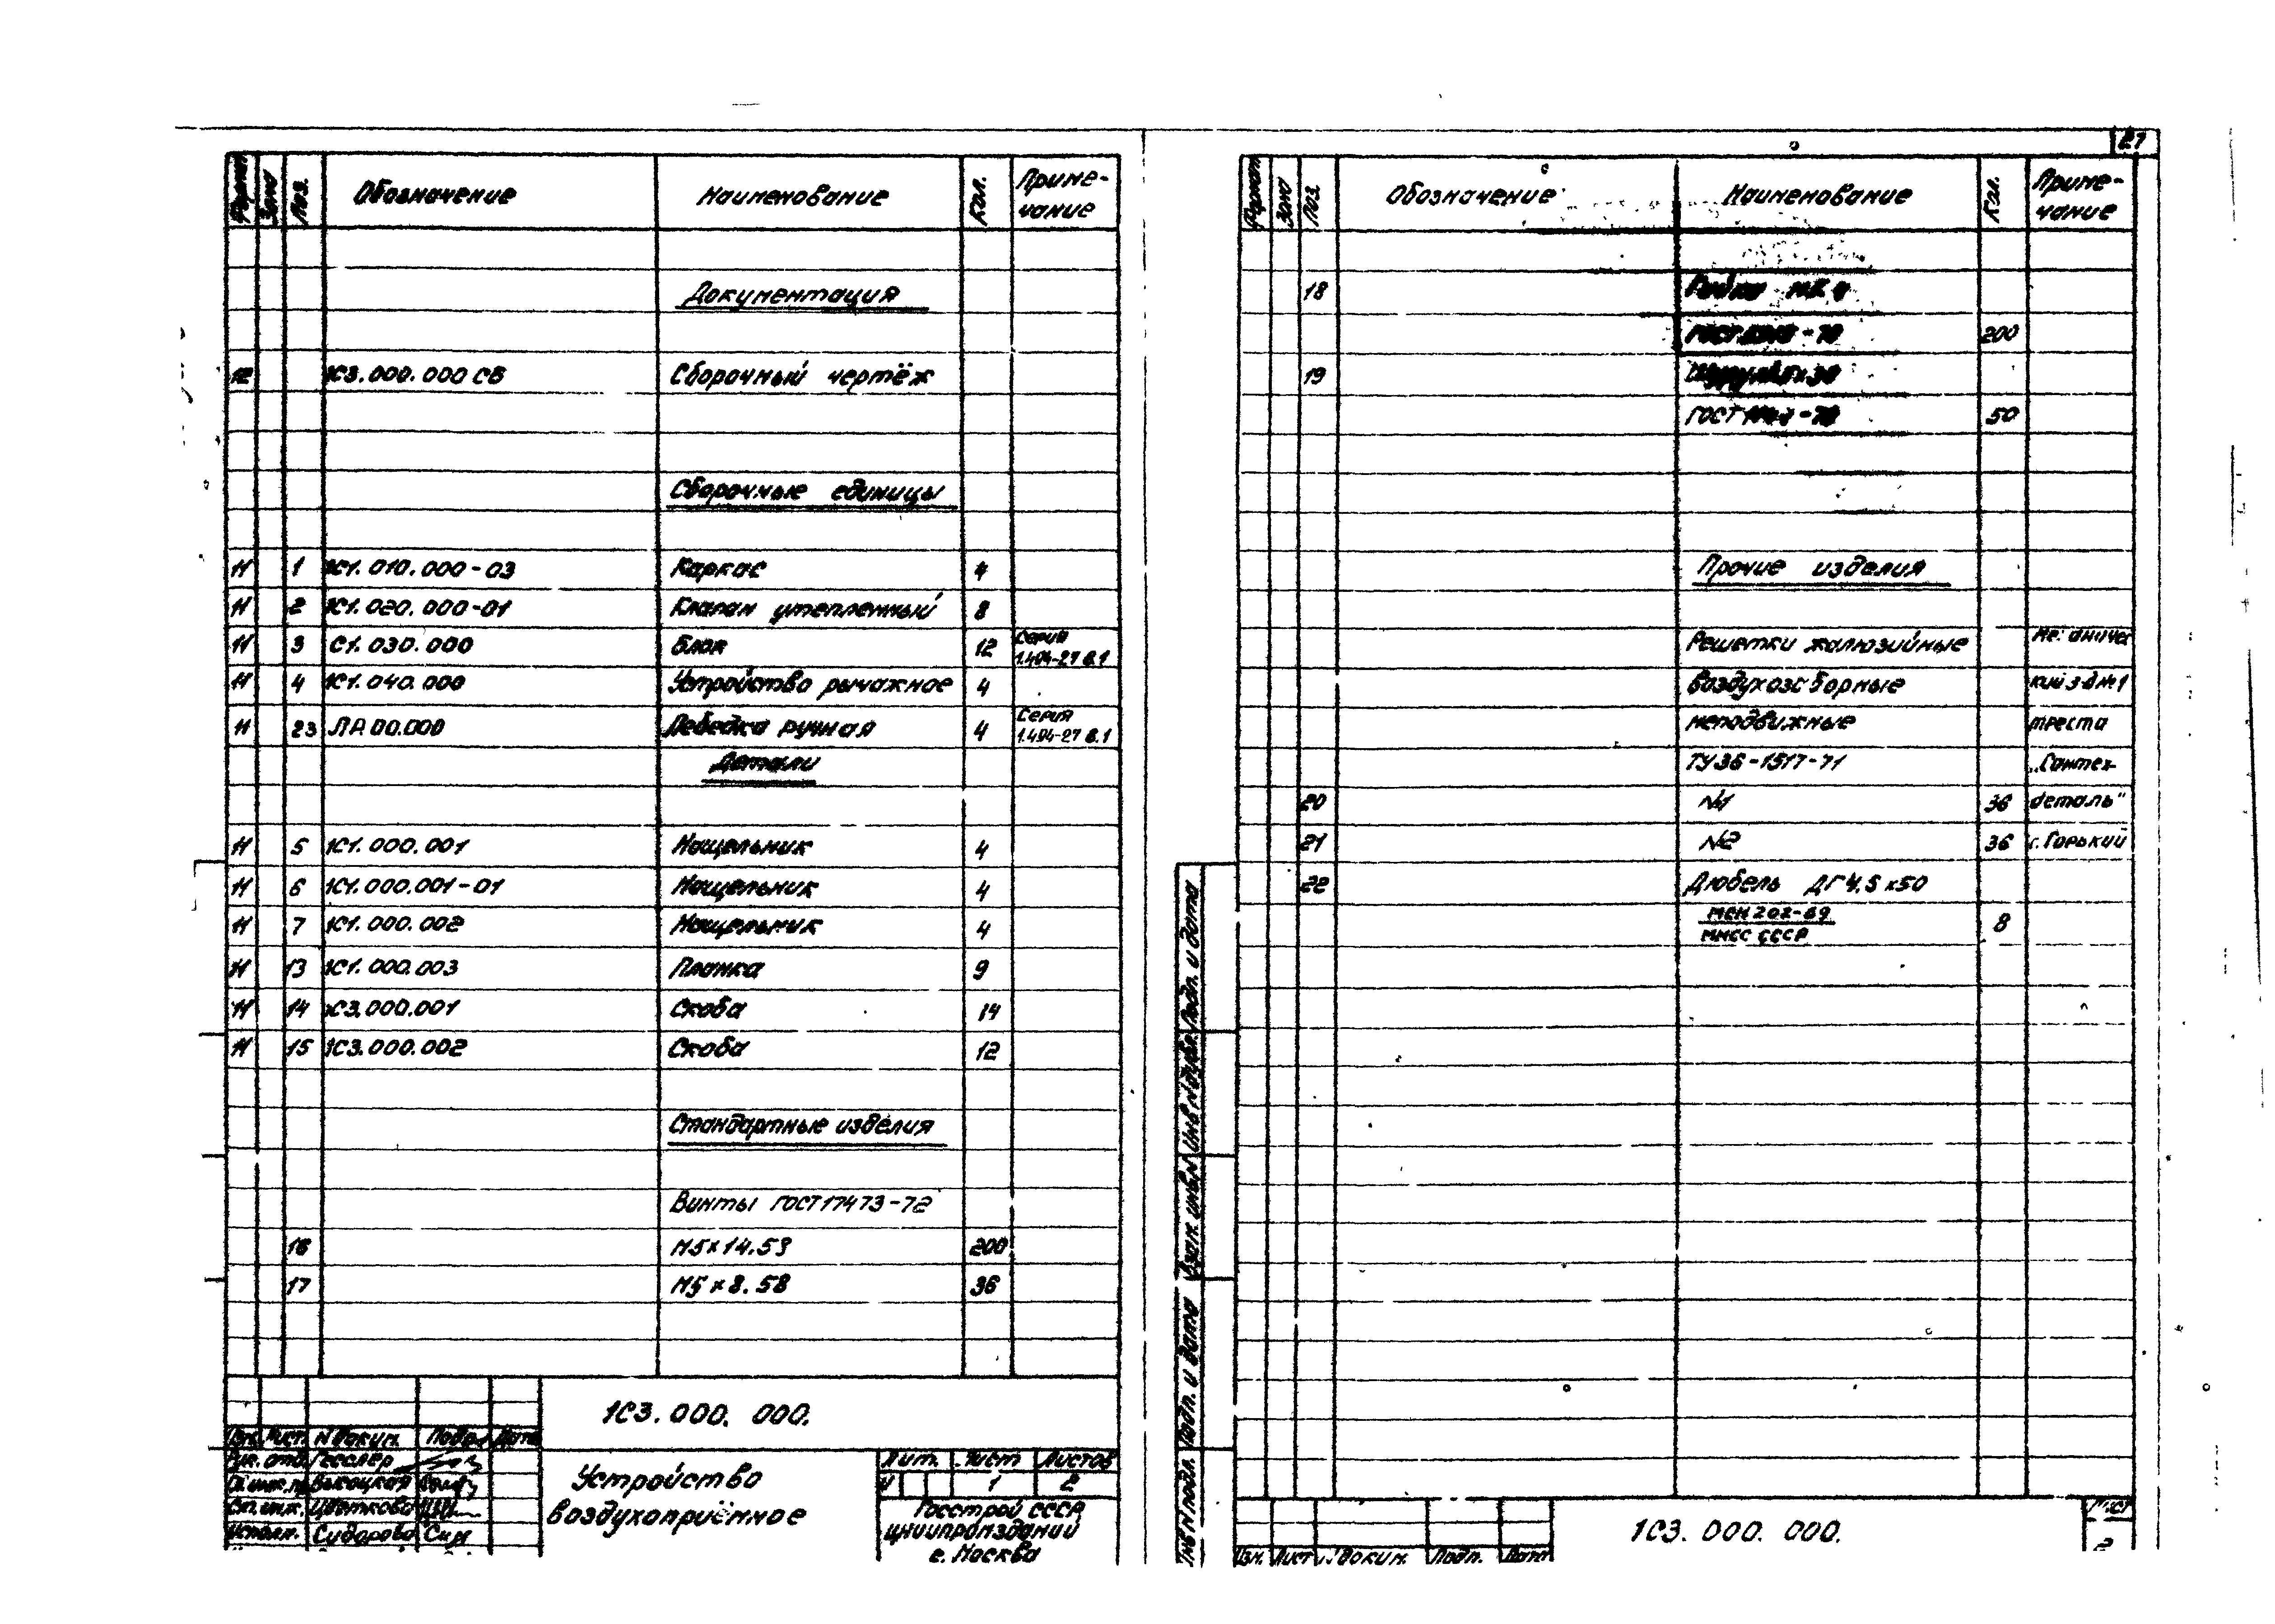 Формат Зона Поз. Обозначение Наименование Кол. Приме-
чание
Документация
12 1С3.000.000 СБ Сборочный чертёж
Сборочные единицы
11 1 1С1.010.000-03 Каркас 4
11 2 1С1.020.000-01 Клапан утепленный 8
11 3 С1.030.000 Блок 12 Серия
1.494-27 в.1
11 4 1С1.040.000 Устройство рычажное 4
11 23 ЛР.00.000 Лебедка ручная 4 Серия
1.494-27 в.1
Детали
11 5 1С1.000.001 Нащельник 4
11 6 1С1.000.001-01 Нащельник 4
11 7 1С1.000.002 Нащельник 4
11 13 1С1.000.003 Планка 9
11 14 1С3.000.001 Скоба 14
11 15 1С3.000.002 Скоба 12
Стандартные изделия
Винты ГОСТ 17473-72
16 М5х14.58 200
17 М5х8.58 36
1С3.000.000.
Изм. Лист N докум. Подп. Дата
Рук. отд. Гесслер
Гл. инж. пр. Высоцкая
Вт. инж. Цветкова
Исполн. Сидорова
Устройство
воздухоприёмное
Лит. Лист Листов
1 2
Госстрой СССР
ЦНИИпромзданий
г. Москва
21
Формат Зона Поз. Обозначение Наименование Кол. Приме-
чание
18 Гайка
ГОСТ -70 200
19 х30
ГОСТ 50
Прочие изделия
Решетки жалюзийные механичес
воздухозаборные кий з-д №1
неподвижные треста
ТУ36-1517-71 „Сантех-
20 №1 36 деталь"
21 №2 36 г. Горький
22 Дюбель ДГ 4,5х50
МСН 202-69
ММСС СССР 8
Инв N подл. Подп. и дата Взам. инв N Инв N дубл. Подп. и дата
Изм. Лист N докум. Подп. Дата
1С3.000.000.
Лист
2